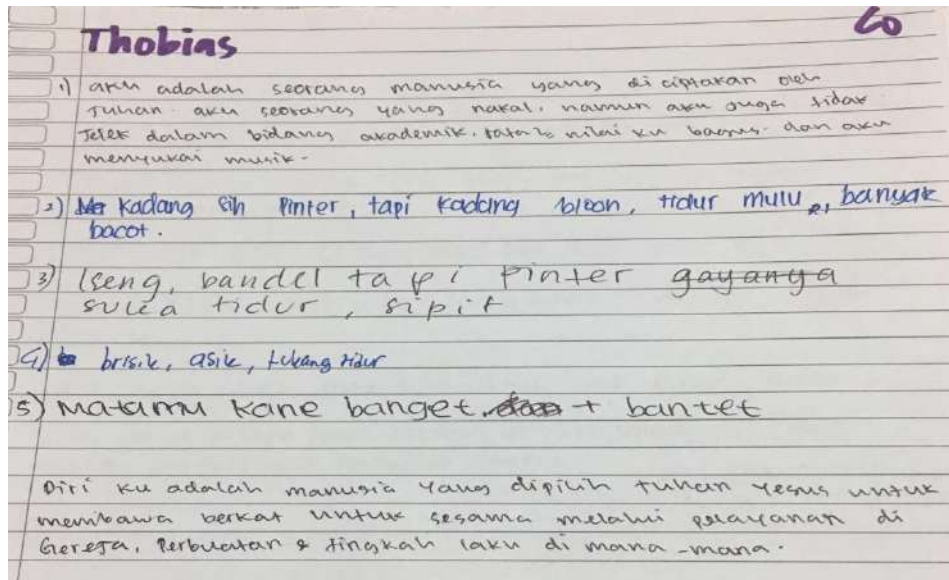 Thobias
60
1) aku adalah seorang manusia yang di ciptakan oleh
Tuhan. aku seorang yang nakal. namun aku juga tidak
Jelek dalam bidang akademik. rata2 nilai ku bagus. dan aku
menyukai musik.
2) Kadang sih Pinter, tapi kadang bloon, tidur mulu, banyak
bacot.
3) Iseng, bandel tapi pinter gayanya
suka tidur, sipit
4) brisik, asik, tukang tidur
5) Matamu kane banget + bantet
Diri ku adalah manusia yang dipilih tuhan yesus untuk
membawa berkat untuk sesama melalui pelayanan di
Gereja, Perbuatan & tingkah laku di mana-mana.